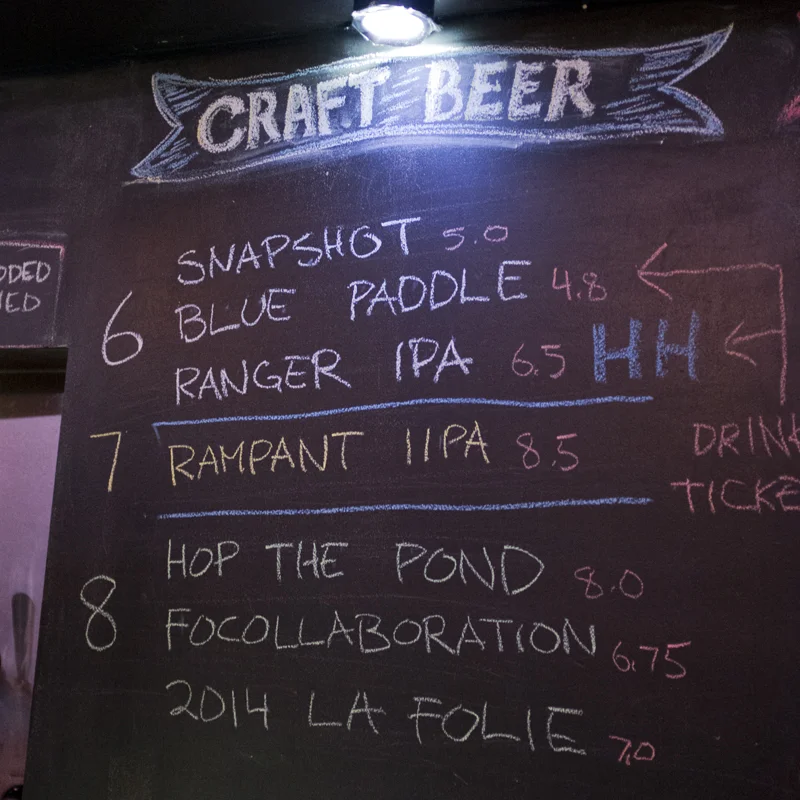 CRAFT BEER
DDED
IED
SNAPSHOT 5.0
6 BLUE PADDLE 4.8
RANGER IPA 6.5 HH
7 RAMPANT IIPA 8.5
DRINK
TICKE
8 HOP THE POND 8.0
FOCOLLABORATION 6.75
2014 LA FOLIE 7.0